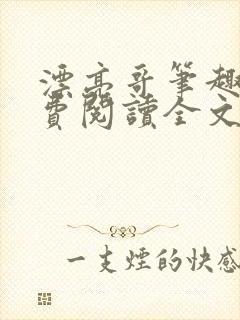 漂亮哥筆趣
費閱讀全文
一支煙的快感